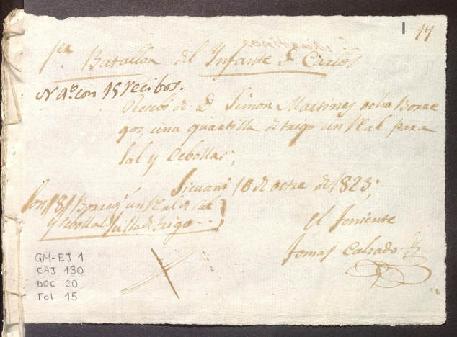 1 14
pr. Batallon del Infante Dn. Carlos
Nº 4º con 15 recibos.
Recivi de D. Simon Martinez ocho Borre
gos, una quartilla de trigo un Real para
sal y Cebollas;
Sicuani 10 de octre. de 1823;
Son 8 Borreg. un Real de sal
y cebollas, qlla. de trigo
El Teniente
Tomas Calzado
GM-EJ 1
CAJ 130
DOC 20
FOL 15